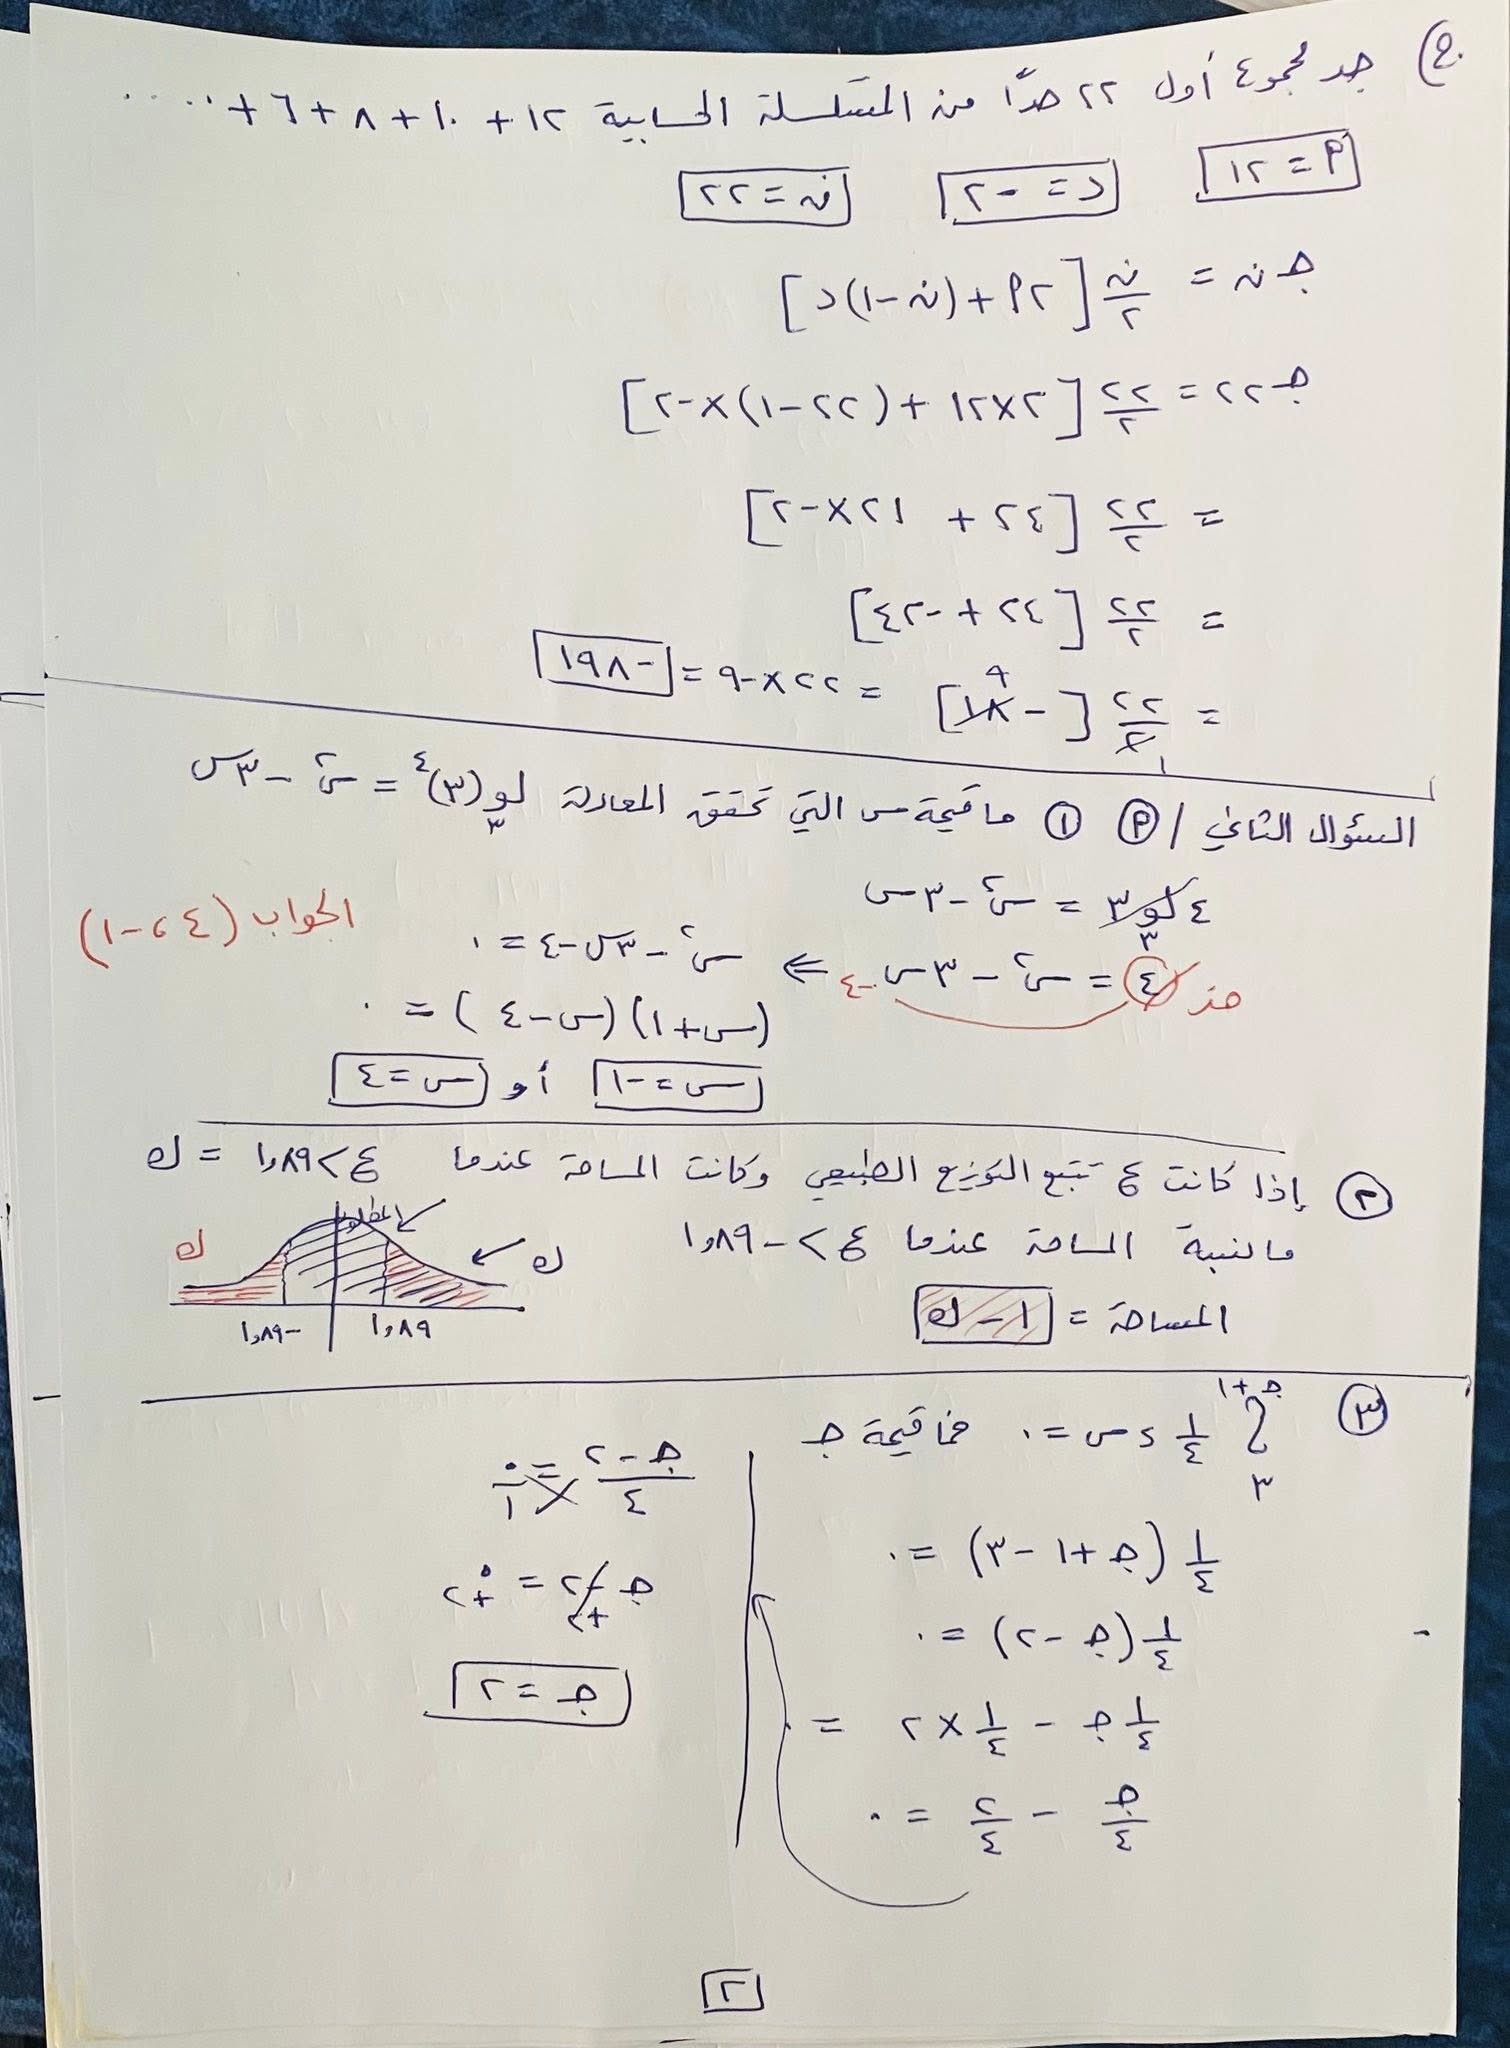 جـ) جد مجموع أول ٢٢ حدًا من المتسلسلة الحسابية ١٢ + ١٠ + ٨ + ٦ + .....
أ = ١٢   د = -٢   ن = ٢٢
جـ ن = ن/٢ [٢أ + (ن-١)د]
جـ٢٢ = ٢٢/٢ [٢×١٢ + (٢٢-١)×-٢]
= ٢٢/٢ [٢٤ + ٢١×-٢]
= ٢٢/٢ [٢٤ + -٤٢]
= ٢٢/٢ [-١٨] = ٢٢×-٩ = -١٩٨
٩
١
السؤال الثاني / أ ① ما قيمة س التي تحقق المعادلة لو٣(٣)^٤ = س² - ٣س
٤ لو٣ ٣ = س² - ٣س
٤ = س² - ٣س -٤ ⇐ س² - ٣س - ٤ = ٠
الجواب (٤ ، -١)
(س+١)(س-٤) = ٠
س = -١ أو س = ٤
② إذا كانت ع تتبع التوزيع الطبيعي وكانت المساحة عندما ع > ١٫٨٩ = ك
ما نسبة المساحة عندما ع > -١٫٨٩
المساحة = ١ - ك
المطلوب
ك ك
١٫٨٩ -١٫٨٩
③ ∫ ٣ جـ+١ ١/٤ دس = ٠ فما قيمة جـ
١/٤ (جـ + ١ - ٣) = ٠
١/٤ (جـ - ٢) = ٠
١/٤ جـ - ١/٤ × ٢ = ٠
جـ/٤ - ٢/٤ = ٠
جـ - ٢/٤ = ٠/١
جـ - ٢ = ٠
+٢ +٢
جـ = ٢
٢